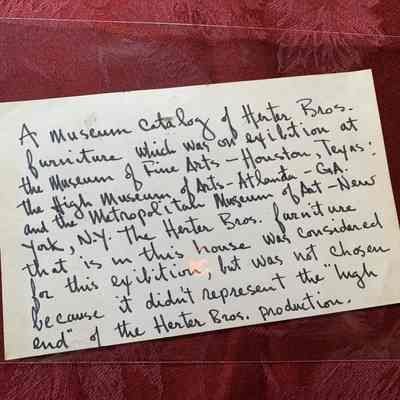 A museum catalog of Herter Bros.
furniture which was on exibition at
the Museum of Fine Arts - Houston, Texas:
the High Museum of Arts - Atlanta - GA.
and the Metropolitan Museum of Art - New
York, N.Y. The Herter Bros. furniture
that is in this house was considered
for this exibition, but was not chosen
because it didn't represent the "high
end" of the Herter Bros. production.